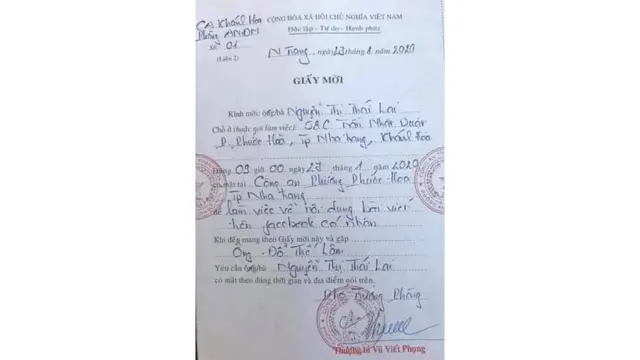 CA Khánh Hòa
Phòng ANĐN
Số 01
(Liên 2)
CỘNG HÒA XÃ HỘI CHỦ NGHĨA VIỆT NAM
Độc lập - Tự do - Hạnh phúc
N Trang, ngày 23 tháng 1 năm 2020
GIẤY MỜI
Kính mời: ông/bà Nguyễn Thị Thái Lai
Chỗ ở (hoặc nơi làm việc): 58C Trần Nhật Duật
P. Phước Hòa, Tp Nha Trang, Khánh Hòa
Đúng 09 giờ 00 ngày 27 tháng 1 năm 2020
có mặt tại Công an Phường Phước Hòa
Tp Nha Trang
để làm việc về nội dung bài viết
trên facebook cá nhân
Khi đến mang theo Giấy mời này và gặp
Ông Đỗ Thế Lâm
Yêu cầu ông/bà Nguyễn Thị Thái Lai
có mặt theo đúng thời gian và địa điểm nói trên.
Phó Trưởng Phòng
Thượng tá Vũ Viết Phong